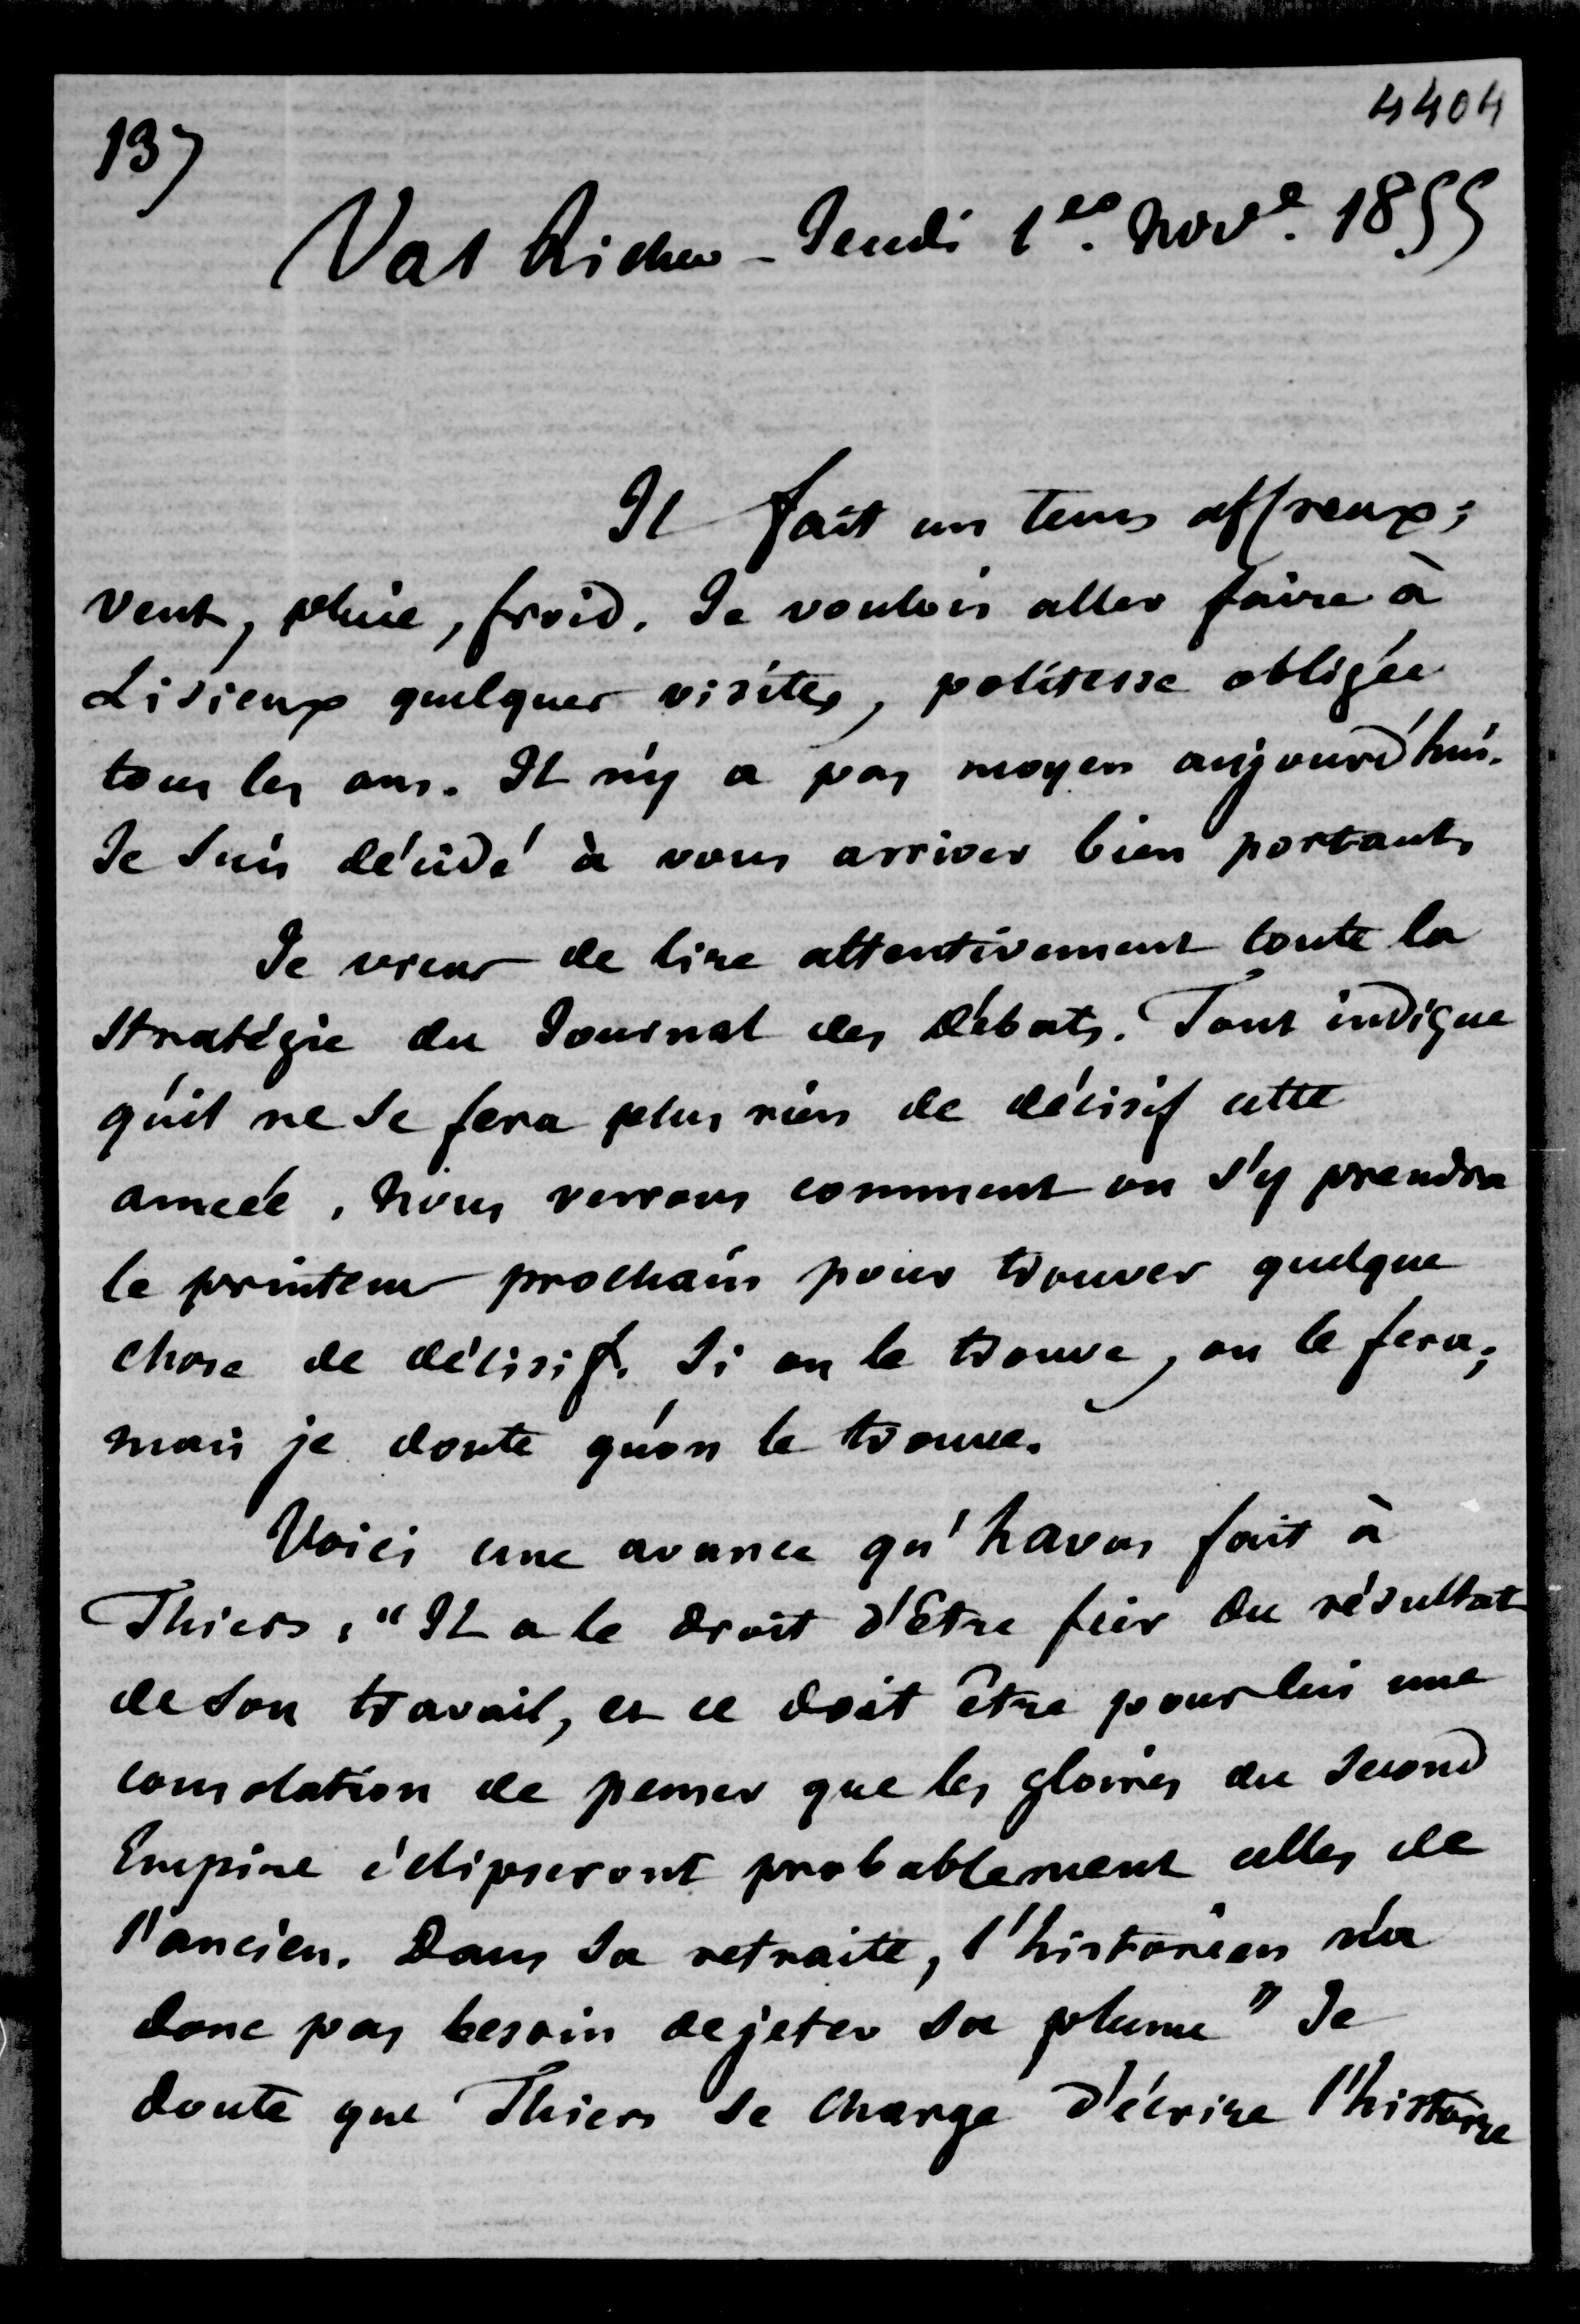 4404
137
Val Richer - Jeudi 1er. Nove. 1855
Il fait un tems affreux ;
vent, pluie, froid. Je voulois aller faire à
Lisieux quelques visites, politesse obligée
tous les ans. Il n'y a pas moyen aujourd'hui.
Je suis décidé à vous arriver bien portant.
Je viens de lire attentivement toute la
stratégie du Journal des Débats. Tout indique
qu'il ne se fera plus rien de décisif cette
année. Nous verrons comment on s'y prendra
le printems prochain pour trouver quelque
chose de décisif. Si on le trouve, on le fera ;
mais je doute qu'on le trouve.
Voici une avance qu'havas fait à
Thiers. "Il a le droit d'être fier du résultat
de son travail, et ce doit être pour lui une
consolation de penser que les gloires du second
Empire éclipseront probablement celles de
l'ancien. Dans sa retraite, l'historien n'a
donc pas besoin de jeter sa plume" Je
doute que Thiers se charge d'écrire l'histoire